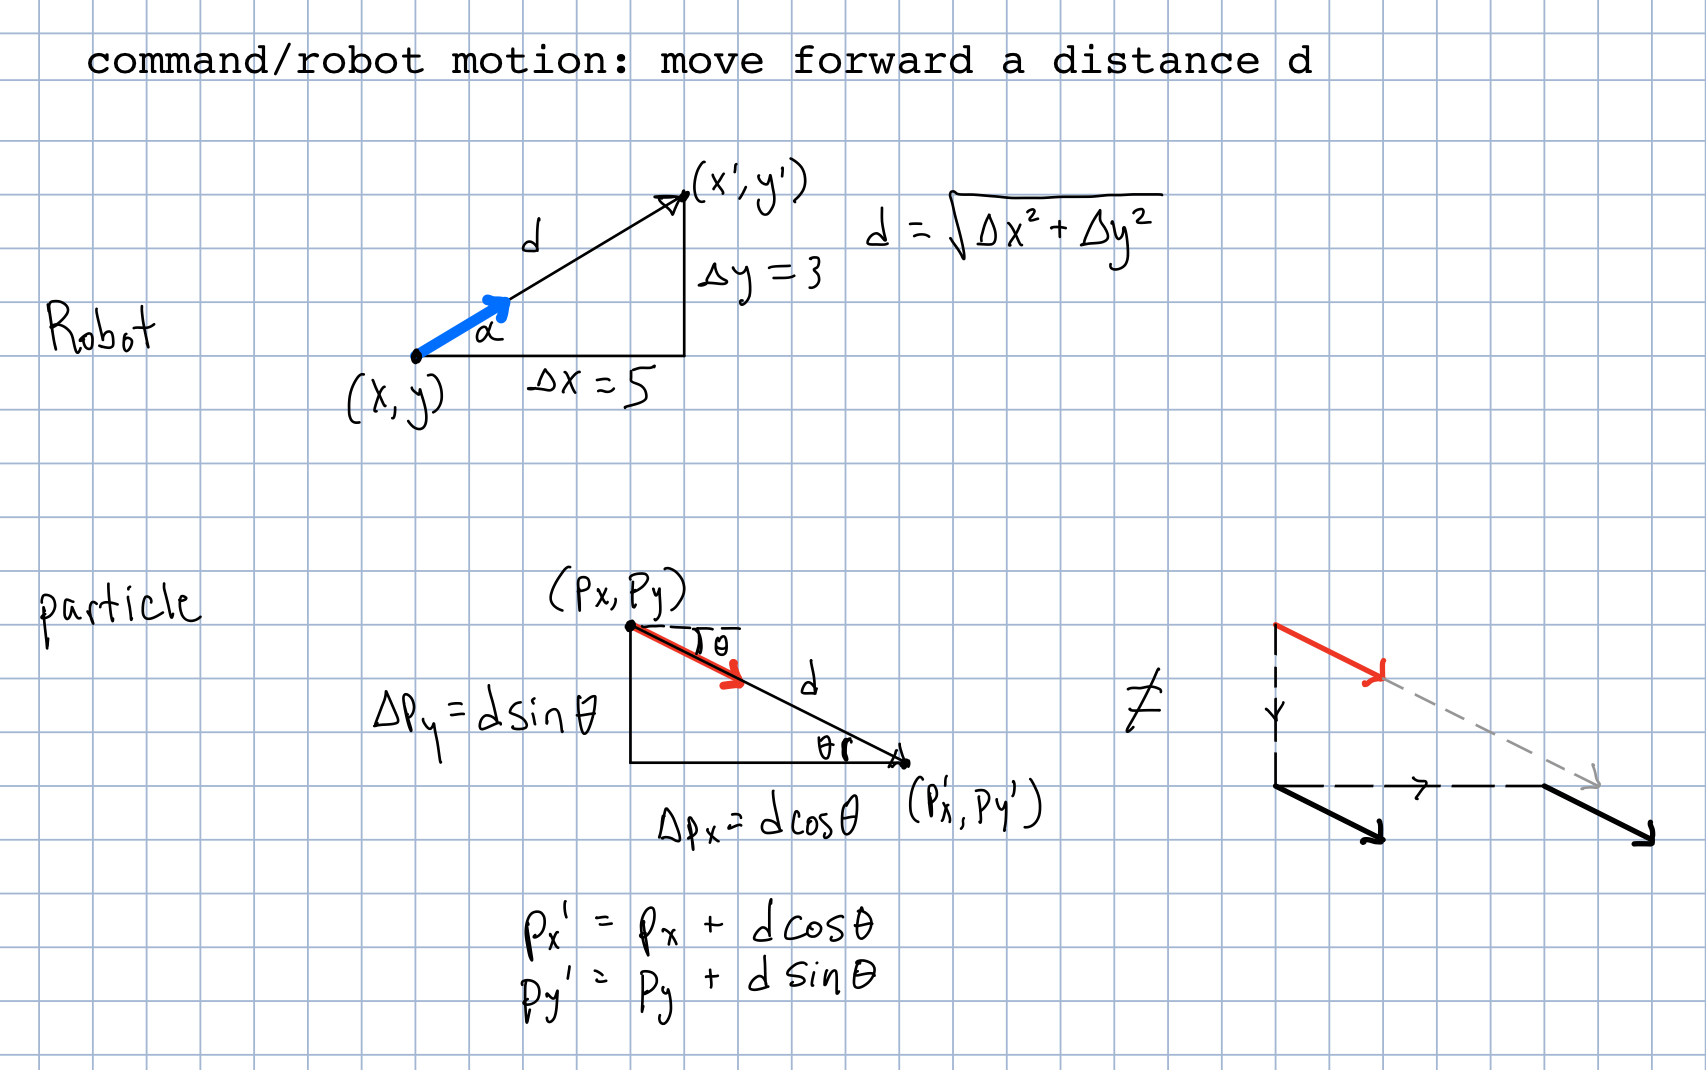 command/robot motion: move forward a distance d
(x', y')
d
d = √Δx² + Δy²
Δy = 3
Robot
α
(x, y)
Δx = 5
(Px, Py)
particle
θ
d
ΔPy = d sin θ
≠
θ
(Px', Py')
ΔPx = d cos θ
Px' = Px + d cos θ
Py' = Py + d sin θ